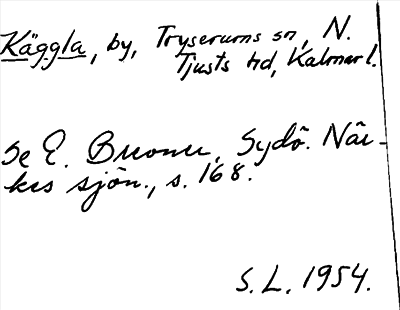 Käggla, by, Tryserums sn, N.
Tjusts hd, Kalmar l.
Se E. Brunner, Sydö. När-
kes sjön., s. 168.
S. L. 1954.